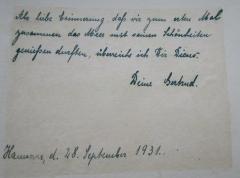 Als liebe Erinnerung daß wir zum ersten Mal
zusammen das Meer mit seinen Schönheiten
genießen durften, überreiche ich Dir Dieses.
Deine Gertrud.
Hannover, d. 28. September 1931.